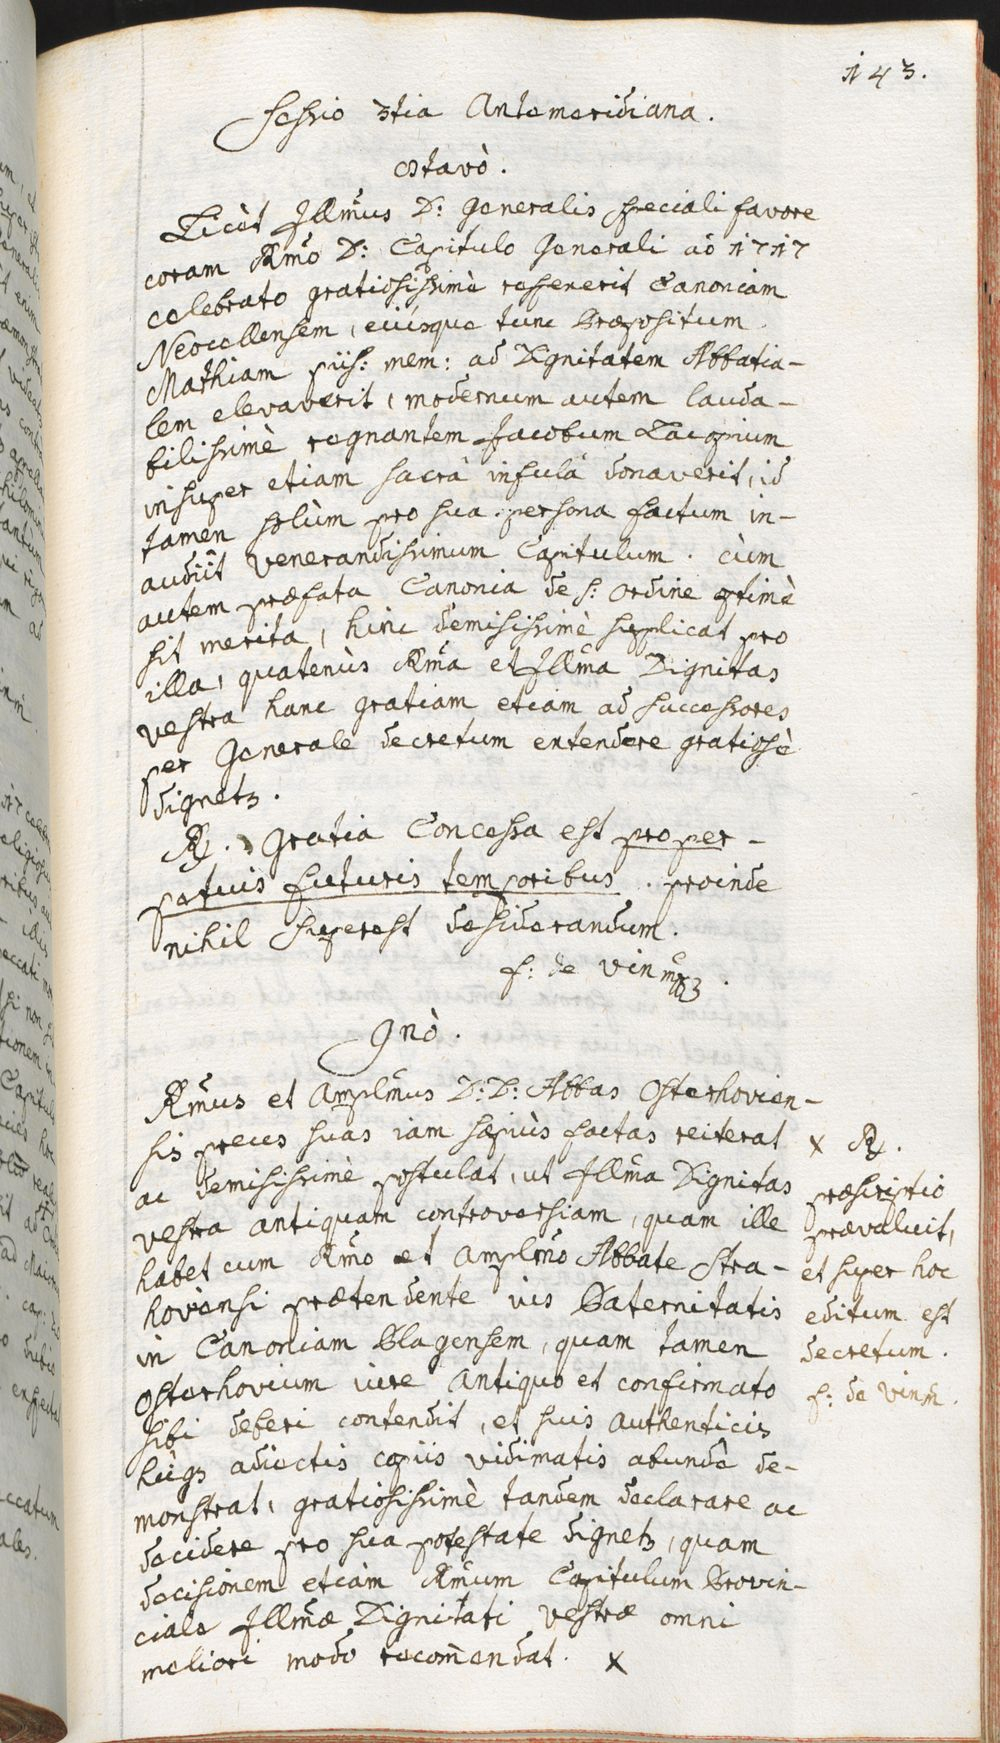 143.
Sessio 3tia Antemeridiana.
octavò.
Licèt Illm̃us D: Generalis speciali favore
coram Rm̃o D: Capitulo Generali aõ 1717
celebrato gratiosissimè resseretit Canoniam
Neocellensem, eiúsque tunc Præpositum
Mathiam piis: mem: ad Dignitatem Abbatia-
lem elevaverit, modernum autem lauda-
bilissimè regnantem Jacobum Lacopium
insuper etiam sacrâ infulâ donaverit, id
tamen solùm pro sua persona factum in-
audiit Venerandissimum Capitulum. cùm
autem præfata Canonia de s: ordine optimè
sit merita, hinc demississimè supplicat pro
illa, quatenùs Rm̃a et Illm̃a Dignitas
vestra hanc gratiam etiam ad successores
per Generale decretum extendere gratiosè
dignetꝫ.
℟. Gratia Concessa est pro per-
petuis futuris temporibus. proinde
nihil superest desiderandum.
f: de Vinm̃
9nò.
Rm̃us et Amplm̃us D: D: Abbas Osterhovien-
sis preces suas iam sæpiùs factas reiterat
ac demississimè postulat, ut Illm̃a Dignitas
vestra antiquam controversiam, quam ille
habet cum Rm̃o et Amplm̃o Abbate Stra-
hoviensi prætendente ius Paternitatis
in Canoniam Plagensem, quam tamen
Osterhovium iure antiquo et confirmato
sibi deberi contendit, et suis authenticis
hùcqꝫ adiectis copiis vidimatis abundè de-
monstrat, gratiosissimè tandem declarare ac
decidere pro sua potestate dignetꝫ, quam
decisionem etiam Rm̃um Capitulum Provin-
ciale Illm̃æ Dignitati Vestræ omni
meliori modo recom̃endat. x
x ℟.
præscriptio
prævaluit,
et super hoc
editum est
decretum.
f: de Vinm̃.